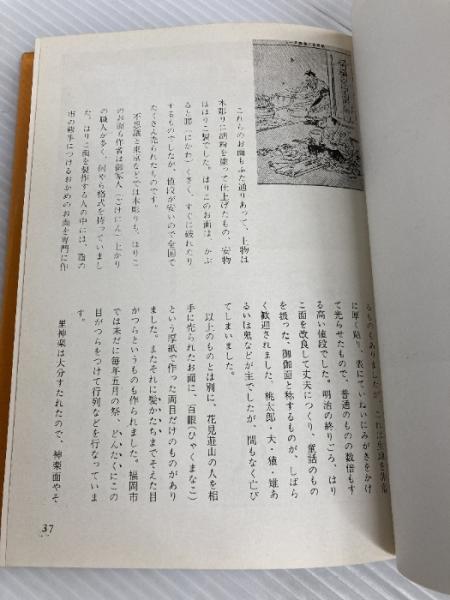 これらのお面もふた通りあって、上物は
木彫りに胡粉を塗って仕上げたもの、安物
ははりこ製でした。はりこのお面は、かぶ
ると膠(にかわ)くさく、すぐに破れたり
するものでしたが、値段が安いので全国で
たくさん売られたものです。
不思議と東京などでは木彫りも、はりこ
のお面も作者は御家人(ごけにん)上がり
の職人が多く、何やら格式を持っていまし
た。はりこ面を製作する人の中には、酉の
市の熊手につけるおかめのお面を専門に作
るものもありましたが、これは
に厚く貼り、表にていねいにみがきをかけ
て光らせたもので、普通のものの数倍もす
る高い値段でした。明治の終りごろ、はり
こ面を改良して丈夫につくり、童話のもの
を扱った、御伽面と称するものが、しばら
く歓迎されました。桃太郎・犬・猿・雉あ
るいは鬼などが主でしたが、間もなく亡び
てしまいました。
以上のものとは別に、花見遊山の人を相
手に売られたお面に、百眼(ひゃくまなこ)
という厚紙で作った両目だけのものがあり
ました。またそれに髪かたちまでそえた目
かつらというものも作られました。福岡市
では未だに毎年五月の祭、どんたくにこの
目かつらをつけて行列などを行なっていま
す。
里神楽は大分すたれたので、神楽面やそ
37